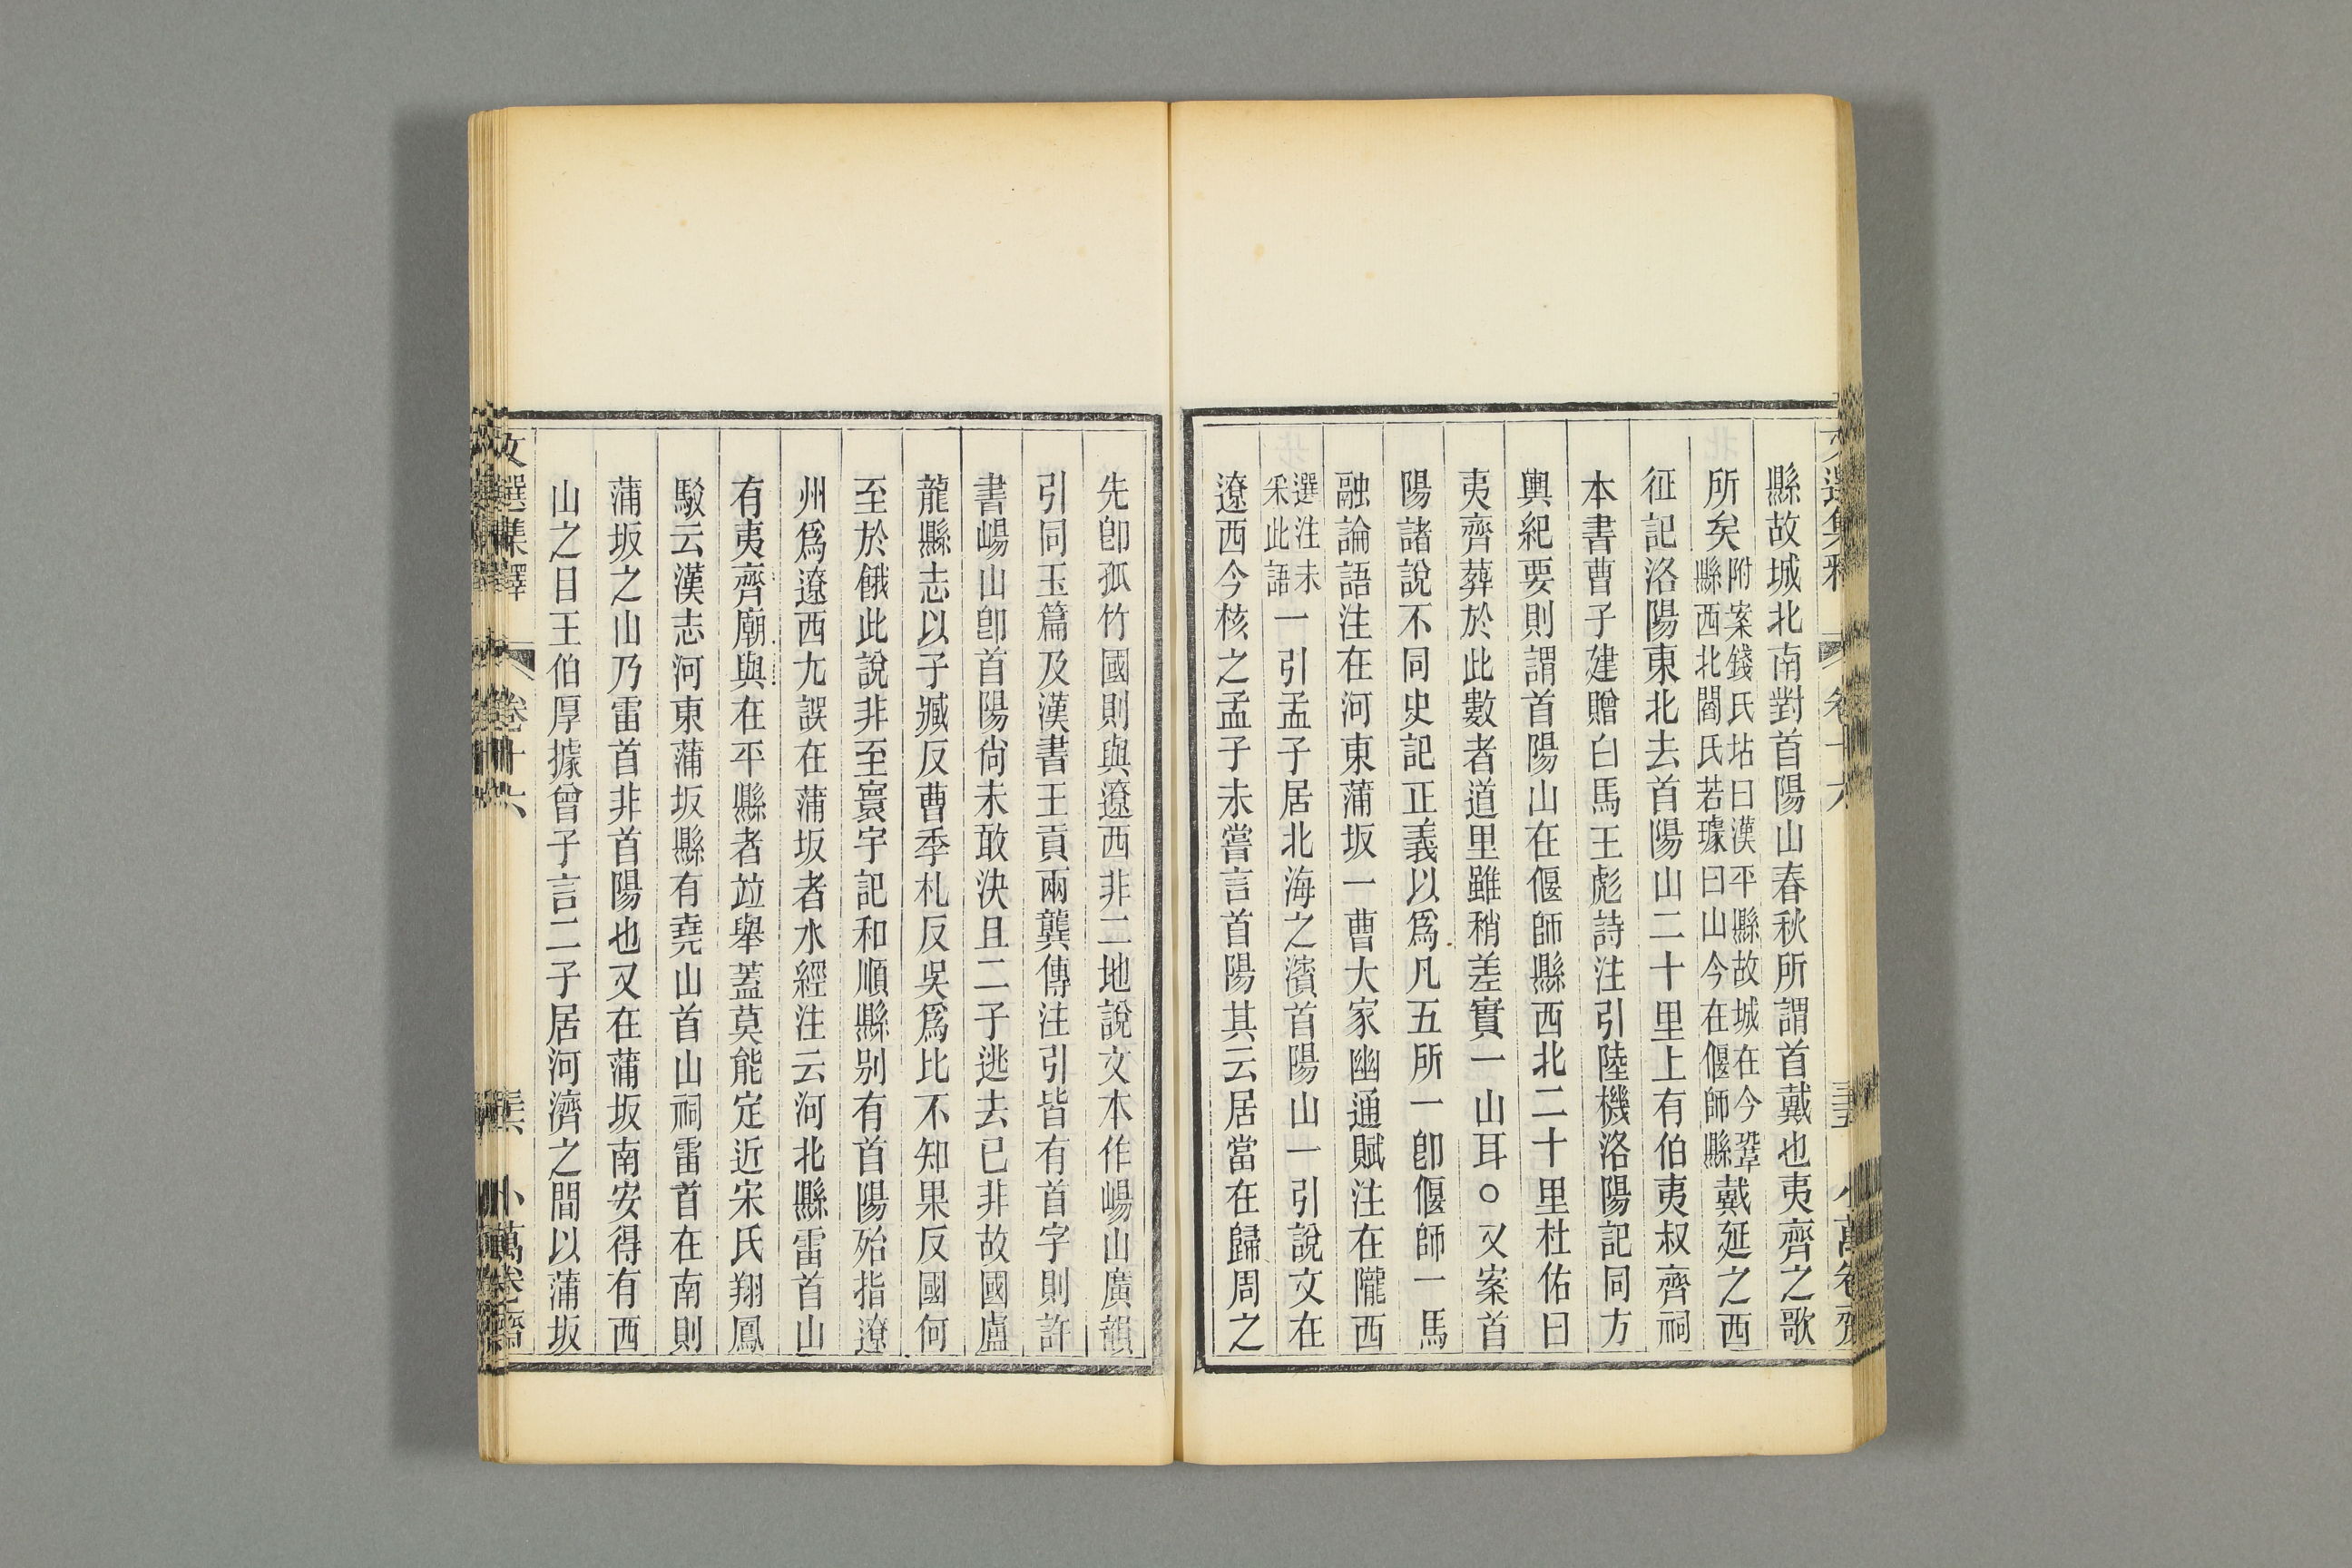 縣故城北南對首陽山春秋所謂首戴也夷齊之歌
所矣附案錢氏坫曰漢平縣故城在今鞏縣西北閻氏若璩曰山今在偃師縣戴延之西
征記洛陽東北去首陽山二十里上有伯夷叔齊祠
本書曹子建贈白馬王彪詩注引陸機洛陽記同方
輿紀要則謂首陽山在偃師縣西北二十里杜佑曰
夷齊葬於此數者道里雖稍差實一山耳○又案首
陽諸說不同史記正義以爲凡五所一卽偃師一馬
融論語注在河東蒲坂一曹大家幽通賦注在隴西
選注未采此語一引孟子居北海之濱首陽山一引說文在
遼西今核之孟子未嘗言首陽其云居當在歸周之
先卽孤竹國則與遼西非二地說文本作崵山廣韻
引同玉篇及漢書王貢兩龔傳注引皆有首字則許
書崵山卽首陽尙未敢決且二子逃去已非故國盧
龍縣志以子臧反曹季札反吳爲比不知果反國何
至於餓此說非至寰宇記和順縣别有首陽殆指遼
州爲遼西尢誤在蒲坂者水經注云河北縣雷首山
有夷齊廟與在平縣者竝舉蓋莫能定近宋氏翔鳳
駁云漢志河東蒲坂縣有堯山首山祠雷首在南則
蒲坂之山乃雷首非首陽也又在蒲坂南安得有西
山之目王伯厚據曾子言二子居河濟之間以蒲坂
文選集釋 卷十六 小萬卷齋